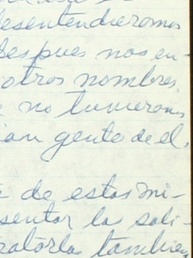 desentendieromos
despues nos en-
otros nombres,
no tuvieron
gente de el
de estas mi-
sentar la sali-
tambien